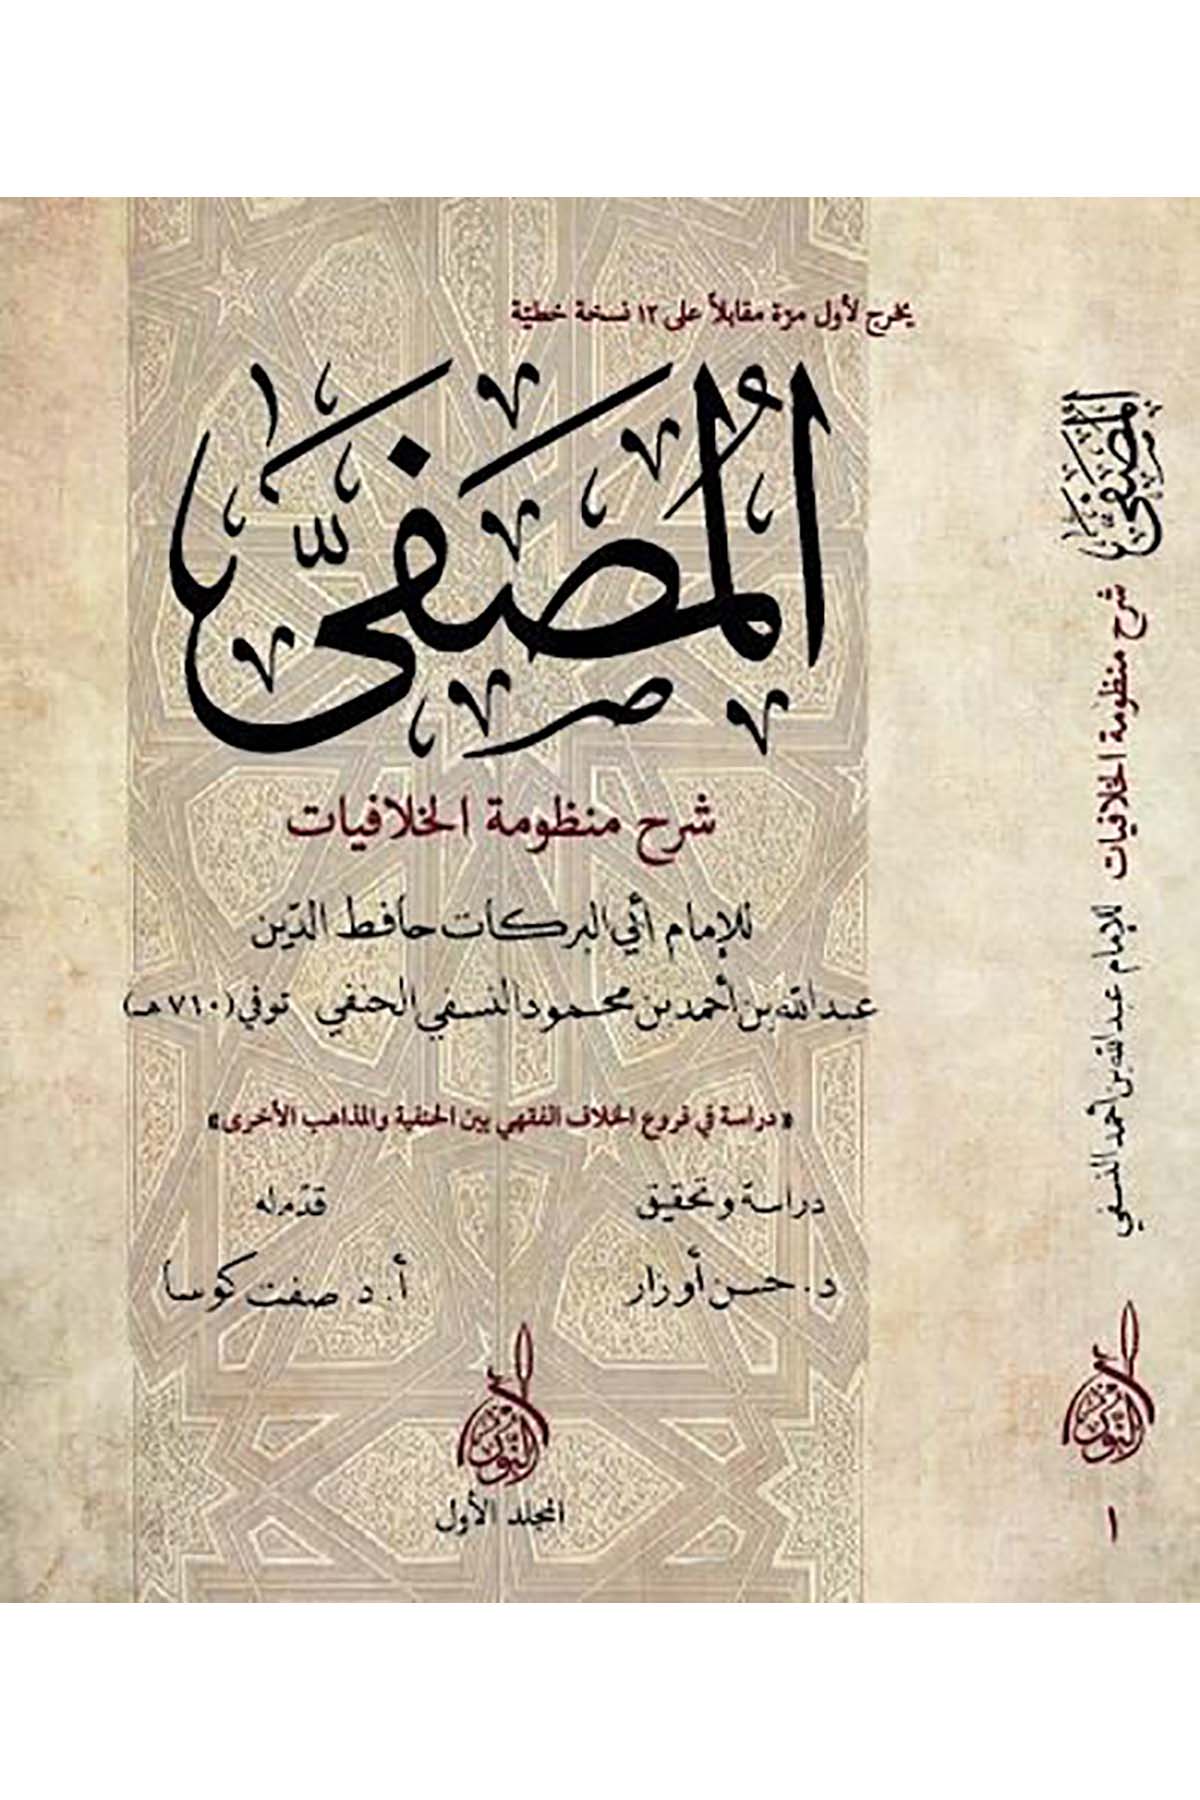 يخرج لأول مرّة مقابلاً على ١٢ نسخة خطيّة
المُصَفَّى
شرح منظومة الخلافيات
للإمام أبي البركات حافظ الدّين
عبد الله بن أحمد بن محمود النسفي الحنفي توفي (٧١٠هـ)
«دراسة في فروع الخلاف الفقهي بين الحنفية والمذاهب الأخرى»
دراسة وتحقيق
د. حسن أوزار
قدّم له
أ. د صفت كوسا
النور
المجلد الأول
المُصَفَّى شرح منظومة الخلافيات للإمام عبد الله بن أحمد النسفي
النور
١